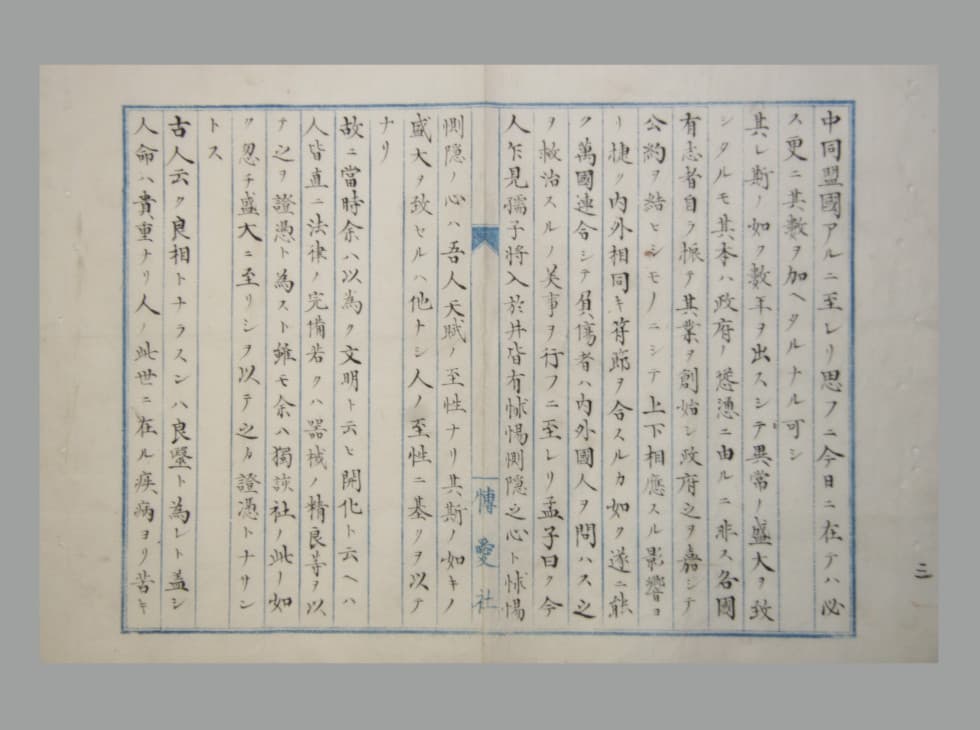 中同盟國アルニ至レリ思フニ今日ニ在テハ必
ス更ニ其數ヲ加ヘタルナル可シ
其レ斯ノ如ク數年ヲ出スシテ異常ノ盛大ヲ致
シタルモ其本ハ政府ノ慫慂ニ由ルニ非ス各國
有志者自ラ振テ其業ヲ創始シ政府之ヲ嘉シテ
公約ヲ結ヒシモノニシテ上下相應スル影響ヨ
リ捷ク内外相同キ符節ヲ合スルカ如ク遂ニ能
ク萬國連合シテ負傷者ハ内外國人ヲ問ハス之
ヲ救治スルノ美事ヲ行フニ至レリ孟子曰ク今
人乍見孺子將入於井皆有怵惕惻隠之心ト怵惕
惻隠ノ心ハ吾人天賦ノ至性ナリ其斯ノ如キノ
盛大ヲ致セルハ他トシ人ノ至性ニ基クヲ以テ
ナリ
故ニ當時余ハ以為ク文明ト云ヒ開化ト云ヘハ
人皆直ニ法律ノ完備若クハ器械ノ精良等ヲ以
テ之ヲ證憑ト為スト雖モ余ハ獨該社ノ此ノ如
ク忽チ盛大ニ至リシヲ以テ之カ證憑トナサン
トス
古人云ク良相トナラスンハ良醫ト為レト蓋シ
人命ハ貴重ナリ人ノ此世ニ在ル疾病ヨリ苦キ
博愛社
三